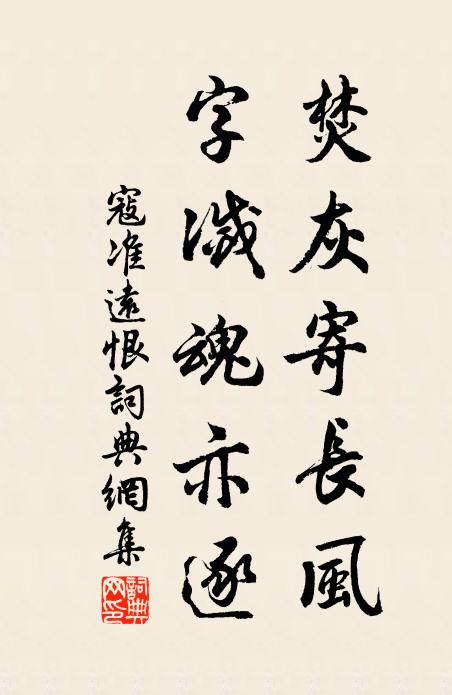 焚灰寄長風
字滅魂亦逐
寇准遠恨詞典網集
詞典网印